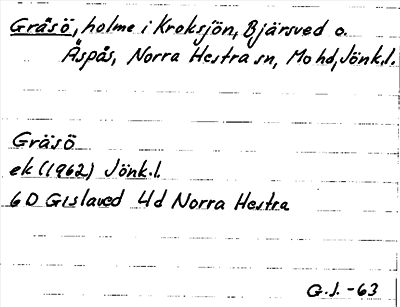 Gräsö, holme i Kroksjön, Bjärsved o.
Äspås, Norra Hestra sn, Mo hd, Jönk.l.
Gräsö
ek (1962) Jönk.l.
6D Gislaved 4d Norra Hestra
G.J. -63